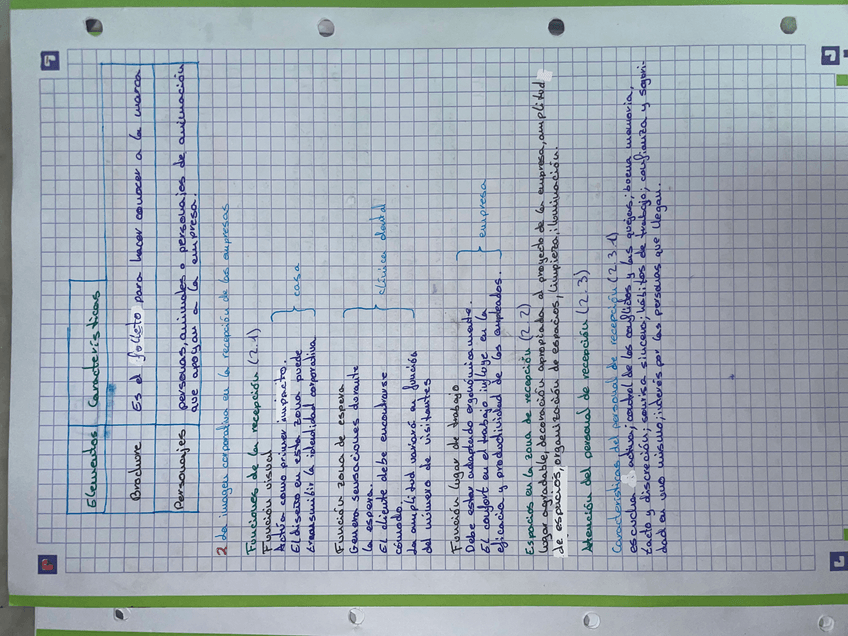 Elementos Características
Brochure Es el folleto para hacer conocer a la marca
Personajes personas, animales o personajes de animación
que apoyan a la empresa.
2 La imagen corporativa en la recepción de las empresas
Funciones de la recepción (2.1)
Función visual
Actúa como primer impacto.
El diseño en esta zona puede
transmitir la identidad corporativa
casa
Función zona de espera
Genera sensaciones durante
la espera.
El cliente debe encontrarse
cómodo.
La amplitud variará en función
del número de visitantes
clínica dental
Función lugar de trabajo
Debe estar adaptando ergonómicamente.
El confort en el trabajo influye en la
eficacia y productividad de los empleados.
empresa
Espacios en la zona de recepción (2.2)
Lugar agradable, decoración apropiada al proyecto de la empresa, amplitud
de espacios, organización de espacios, limpieza, iluminación.
Atención del personal de recepción (2.3)
Características del personal de recepción (2.3.1)
escucha activa; control de los conflictos y las quejas; buena memoria,
tacto y discreción; sonrisa sincera; hábitos de trabajo; confianza y seguri-
dad en uno mismo; interés por las personas que llegan.